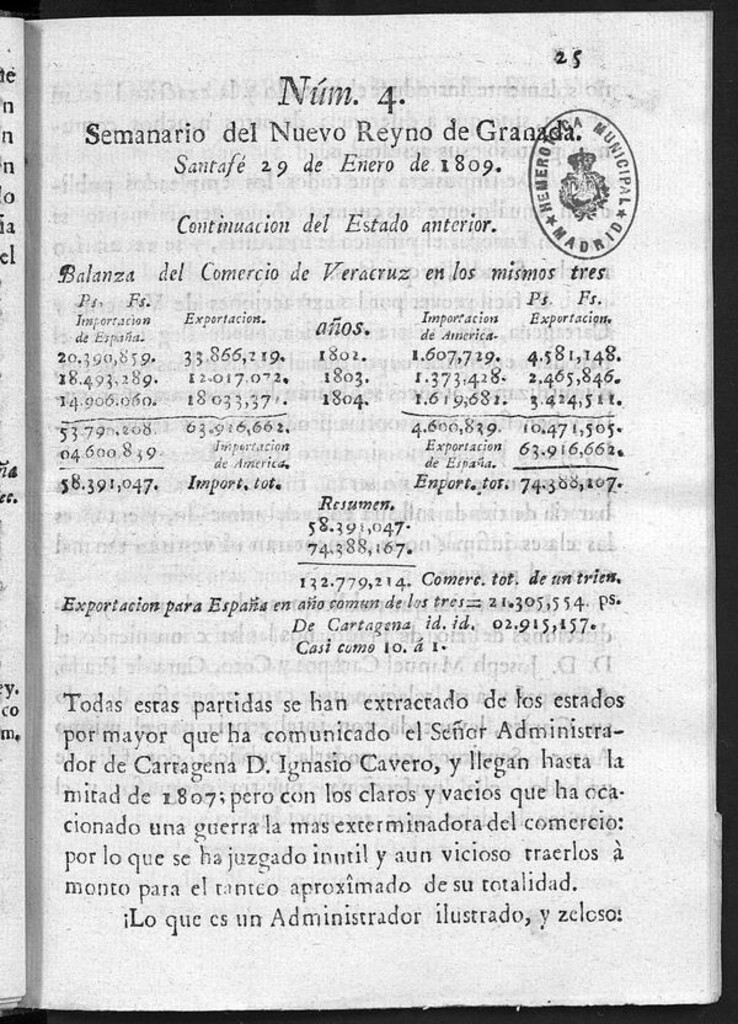 25
Núm. 4.
Semanario del Nuevo Reyno de Granada.
Santafé 29 de Enero de 1809.
HEMEROTECA MUNICIPAL
★ MADRID ★
Continuacion del Estado anterior.
Balanza del Comercio de Veracruz en los mismos tres
Ps. Fs. Ps. Fs.
Importacion Exportacion. años. Importacion Exportacion.
de España. de America.
20.390,859. 33.866,219. 1802. 1.607,729. 4.581,148.
18.493,289. 12.017,072. 1803. 1.373,428. 2.465,846.
14.906.060. 18 033,37 . 1804. 1.619,682. 3.424,511.
53.790.208. 63.916,662. 4.600,839. 10.471,505.
04.600,839. Importacion Exportacion 63.916,662.
de America. de España.
58.391,047. Import. tot. Enport. tot. 74.388,107.
Resumen.
58.391,047.
74.388,167.
132.779,214. Comerc. tot. de un trien.
Exportacion para España en año comun de los tres= 21.305,554. ps.
De Cartagena id. id. 02.915,157.
Casi como 10. á 1.
Todas estas partidas se han extractado de los estados
por mayor que ha comunicado el Señor Administra-
dor de Cartagena D. Ignasio Cavero, y llegan hasta la
mitad de 1807; pero con los claros y vacios que ha oca-
cionado una guerra la mas exterminadora del comercio:
por lo que se ha juzgado inutil y aun vicioso traerlos à
monto para el tanteo aproxîmado de su totalidad.
¡Lo que es un Administrador ilustrado, y zeloso: